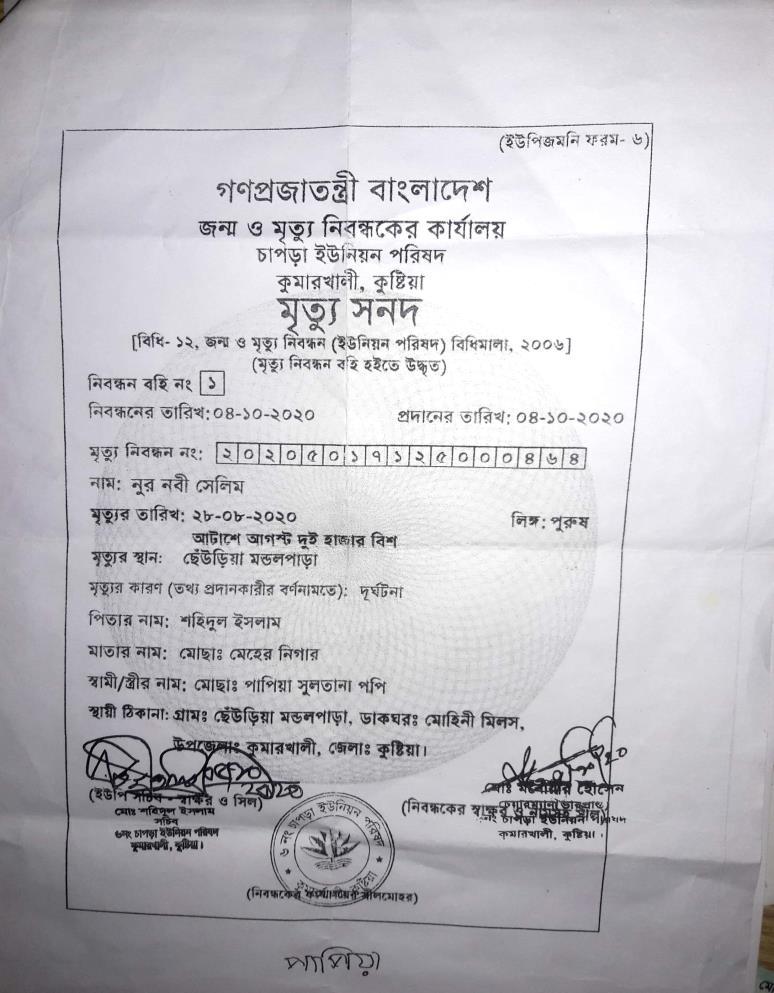 (ইউপিজমনি ফরম- ৬)
গণপ্রজাতন্ত্রী বাংলাদেশ
জন্ম ও মৃত্যু নিবন্ধকের কার্যালয়
চাপড়া ইউনিয়ন পরিষদ
কুমারখালী, কুষ্টিয়া
মৃত্যু সনদ
[বিধি- ১২, জন্ম ও মৃত্যু নিবন্ধন (ইউনিয়ন পরিষদ) বিধিমালা, ২০০৬]
(মৃত্যু নিবন্ধন বহি হইতে উদ্ধৃত)
নিবন্ধন বহি নং ১
নিবন্ধনের তারিখ: ০৪-১০-২০২০ প্রদানের তারিখ: ০৪-১০-২০২০
মৃত্যু নিবন্ধন নং: ২০২০৫০১৭১২৫০০০৪৬৪
নাম: নুর নবী সেলিম
মৃত্যুর তারিখ: ২৮-০৮-২০২০ লিঙ্গ: পুরুষ
আটাশে আগস্ট দুই হাজার বিশ
মৃত্যুর স্থান: ছেঁউড়িয়া মন্ডলপাড়া
মৃত্যুর কারণ (তথ্য প্রদানকারীর বর্ণনামতে): দূর্ঘটনা
পিতার নাম: শহিদুল ইসলাম
মাতার নাম: মোছাঃ মেহের নিগার
স্বামী/স্ত্রীর নাম: মোছাঃ পাপিয়া সুলতানা পপি
স্থায়ী ঠিকানা: গ্রামঃ ছেঁউড়িয়া মন্ডলপাড়া, ডাকঘরঃ মোহিনী মিলস,
উপজেলাঃ কুমারখালী, জেলাঃ কুষ্টিয়া।
(ইউপি সচিব - স্বাক্ষর ও সিল)
মোঃ শবিদুল ইসলাম
সচিব
৬নং চাপড়া ইউনিয়ন পরিষদ
কুমারখালী, কুষ্টিয়া।
মোঃ হোসেন
(নিবন্ধকের স্বাক্ষর ও
চাপড়া ইউনিয়ন
কুমারখালী, কুষ্টিয়া।
৬ নং চাপড়া ইউনিয়ন পরিষদ
কুষ্টিয়া
(নিবন্ধকের কার্যালয়ের সীলমোহর)
পাপিয়া